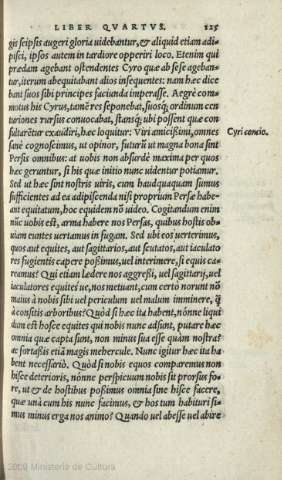 LIBER QVARTVS. 125
gis seipsis augeri gloria uidebantur, & aliquid etiam adi-
pisci, ipsos autem in tardiore opperiri loco. Etenim qui
prædam agebant ostendentes Cyro quæ ab sese ageban-
tur, iterum abequitabant alios insequentes: nam hæc dice
bant suos sibi principes facienda imperasse. Aegrè com-
motus his Cyrus, tamē res seponebat, suosq; ordinum cen
turiones rursus conuocabat, stansq; ubi possent quæ con
sultaretur exaudiri, hæc loquitur: Viri amicissimi, omnes
Cyri concio.
sanè cognoscimus, ut opinor, futurū ut magna bona sint
Persis omnibus: at uobis non absurdè maxima per quos
hæc geruntur, si his quæ initio nunc uidentur potiamur.
Sed ut hæc sint nostris uiris, cum haudquaquam sumus
sufficientes ad ea adipiscenda nisi proprium Persæ habe-
ant equitatum, hoc equidem nō uideo. Cogitandum enim
nūc uobis est, arma habere nos Persas, quibus hostis ob-
uiam euntes uertamus in fugam. Sed ubi eos uerterimus,
quos aut equites, aut sagittarios, aut scutatos, aut iaculato
res fugientis capere possimus, uel interimere, si equis ca-
reamus? Qui etiam lædere nos aggressi, uel sagittarij, uel
iaculatores equites ue, nos metuant, cum certo norunt nō
maius à nobis sibi uel periculum uel malum imminere, q̄
à consitis arboribus? Quòd si hæc ita habent, nónne liqui
dum est hosce equites qui nobis nunc adsunt, putare hæc
omnia quæ capta sunt, non minus sua esse quàm nostra?
ac fortassis etiā magis hercule. Nunc igitur hæc ita ha
bent necessariò. Quòd si nobis equos comparemus non
hisce deteriores, nónne perspicuum nobis sit prorsus fo-
re, ut & de hostibus possimus omnia sine hisce facere,
quæ unà cum his nunc facimus, & hos tum habituri si-
mus minus erga nos animo? Quando uel abesse uel abire
2009 Ministerio de Cultura